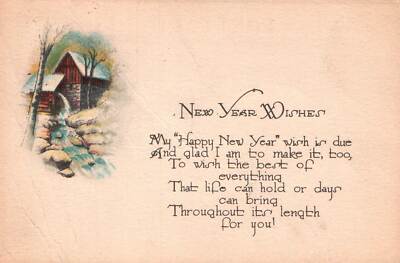 New Year Wishes
My "Happy New Year" wish is due
And glad I am to make it, too,
To wish the best of
everything
That life can hold or days
can bring
Throughout its length
for you!